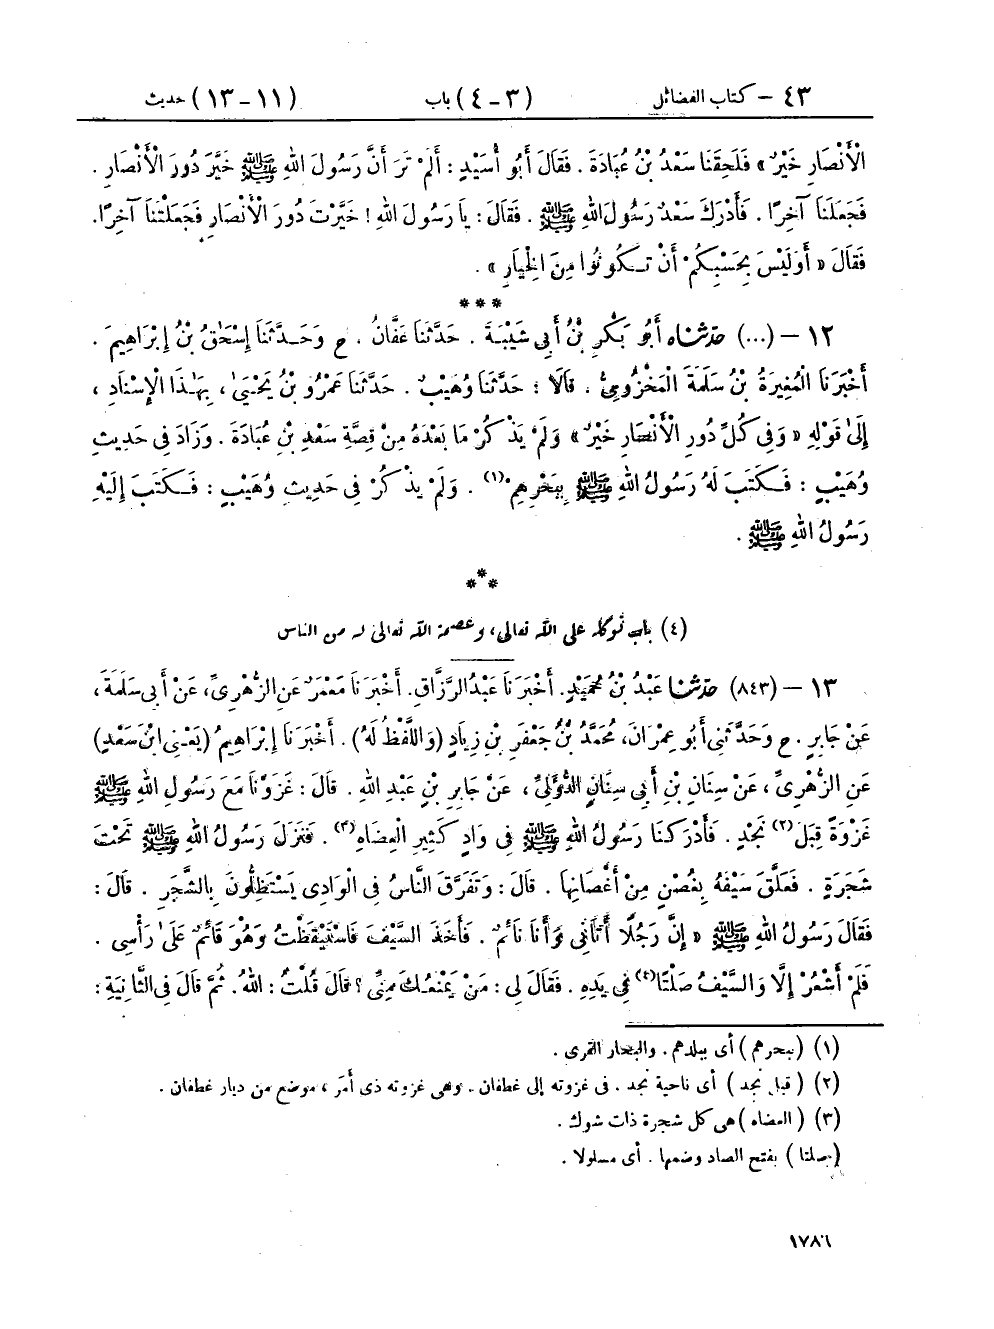 ٤٣ – كتاب الفضائل (٣-٤) باب (١١-١٣) حديث
الْأَنْصَارِ خَيْرٌ» فَلَحِقَنَا سَعْدُ بْنُ عُبَادَةَ . فَقَالَ أَبُو أُسَيْدٍ : أَلَمْ تَرَ أَنَّ رَسُولَ اللهِ ﷺ خَيَّرَ دُورَ الْأَنْصَارِ .
فَجَعَلَنَا آخِرًا . فَأَدْرَكَ سَعْدٌ رَسُولَ اللهِ ﷺ . فَقَالَ : يَا رَسُولَ اللهِ ! خَيَّرْتَ دُورَ الْأَنْصَارِ فَجَعَلْتَنَا آخِرًا.
فَقَالَ « أَوَلَيْسَ بِحَسْبِكُمْ أَنْ تَكُونُوا مِنَ الْخِيَارِ» .
***
١٢ – (...) حدثناه أَبُو بَكْرِ بْنُ أَبِي شَيْبَةَ . حَدَّثَنَا عَفَّانُ . ح وَحَدَّثَنَا إِسْحَٰقُ بْنُ إِبْرَاهِيمَ .
أَخْبَرَنَا الْمُغِيرَةُ بْنُ سَلَمَةَ الْمَخْزُومِيُّ . قَالَا : حَدَّثَنَا وُهَيْبٌ . حَدَّثَنَا عَمْرُو بْنُ يَحْيَىٰ ، بِهَٰذَا الْإِسْنَادِ ،
إِلَىٰ قَوْلِهِ « وَفِي كُلِّ دُورِ الْأَنْصَارِ خَيْرٌ» وَلَمْ يَذْكُرْ مَا بَعْدَهُ مِنْ قِصَّةِ سَعْدِ بْنِ عُبَادَةَ . وَزَادَ فِي حَدِيثِ
وُهَيْبٍ : فَكَتَبَ لَهُ رَسُولُ اللهِ ﷺ بِبَحْرِهِمْ(١) . وَلَمْ يَذْكُرْ فِي حَدِيثِ وُهَيْبٍ : فَكَتَبَ إِلَيْهِ
رَسُولُ اللهِ ﷺ .
***
(٤) باب توكله على الله تعالى، وعصمة الله تعالى له من الناس
١٣ – (٨٤٣) حدثنا عَبْدُ بْنُ حُمَيْدٍ. أَخْبَرَنَا عَبْدُ الرَّزَّاقِ. أَخْبَرَنَا مَعْمَرٌ عَنِ الزُّهْرِيِّ، عَنْ أَبِي سَلَمَةَ،
عَنْ جَابِرٍ . ح وَحَدَّثَنِي أَبُو عِمْرَانَ، مُحَمَّدُ بْنُ جَعْفَرِ بْنِ زِيَادٍ (وَاللَّفْظُ لَهُ) . أَخْبَرَنَا إِبْرَاهِيمُ (يَعْنِي ابْنَ سَعْدٍ)
عَنِ الزُّهْرِيِّ ، عَنْ سِنَانِ بْنِ أَبِي سِنَانٍ الدُّؤَلِيِّ ، عَنْ جَابِرِ بْنِ عَبْدِ اللهِ . قَالَ : غَزَوْنَا مَعَ رَسُولِ اللهِ ﷺ
غَزْوَةً قِبَلَ(٢) نَجْدٍ . فَأَدْرَكَنَا رَسُولُ اللهِ ﷺ فِي وَادٍ كَثِيرِ الْعِضَاهِ(٣) . فَنَزَلَ رَسُولُ اللهِ ﷺ تَحْتَ
شَجَرَةٍ . فَعَلَّقَ سَيْفَهُ بِغُصْنٍ مِنْ أَغْصَانِهَا . قَالَ : وَتَفَرَّقَ النَّاسُ فِي الْوَادِي يَسْتَظِلُّونَ بِالشَّجَرِ . قَالَ :
فَقَالَ رَسُولُ اللهِ ﷺ « إِنَّ رَجُلًا أَتَانِي وَأَنَا نَائِمٌ . فَأَخَذَ السَّيْفَ فَاسْتَيْقَظْتُ وَهُوَ قَائِمٌ عَلَىٰ رَأْسِي .
فَلَمْ أَشْعُرْ إِلَّا وَالسَّيْفُ صَلْتًا(٤) فِي يَدِهِ . فَقَالَ لِي : مَنْ يَمْنَعُكَ مِنِّي ؟ قَالَ قُلْتُ : اللهُ. ثُمَّ قَالَ فِي الثَّانِيَةِ :
(١) (ببحرهم) أى ببلدهم . والبحار القرى .
(٢) (قبل نجد) أى ناحية نجد . فى غزوته إلى غطفان . وهى غزوته ذى أمر ، موضع من ديار غطفان .
(٣) (العضاه) هى كل شجرة ذات شوك .
(صلتا) بفتح الصاد وضمها . أى مسلولا .
١٧٨٦